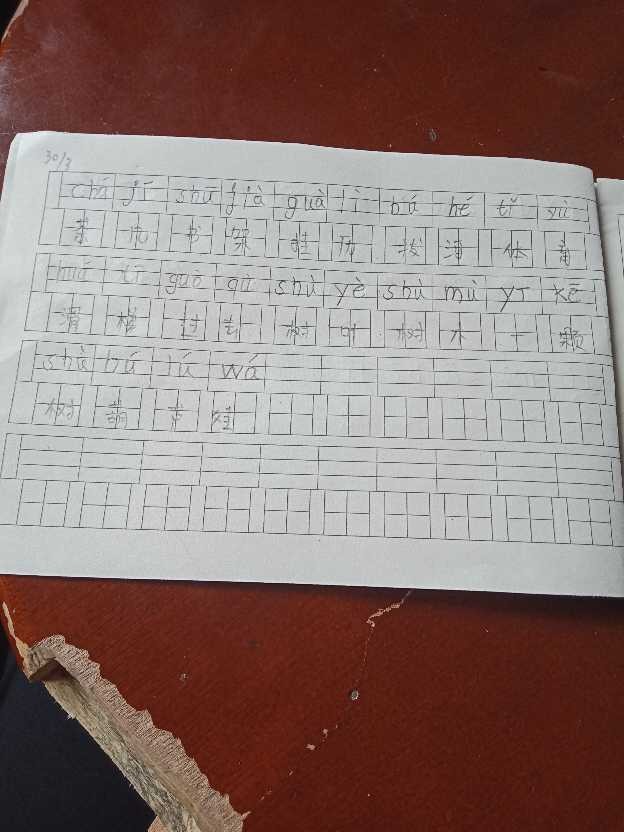 30/3
chá jī shū jià guà lì bá hé tǐ yù
茶 几 书 架 挂 历 拔 河 体 育
huá tī guò qù shù yè shù mù yī kē
滑 梯 过 去 树 叶 树 木 一 颗
shù hú lú wá
树 葫 芦 娃